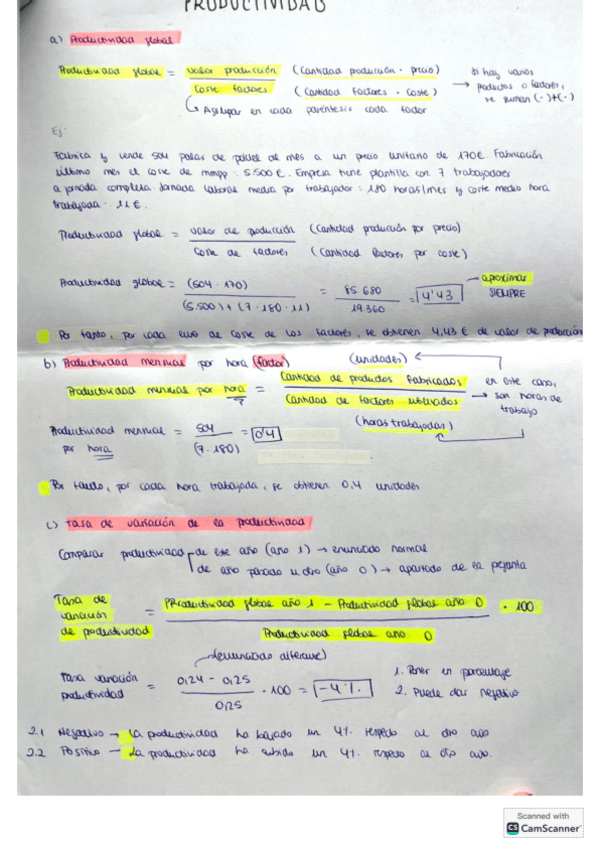 PRODUCTIVIDAD
a) Productividad global
Productividad global = valor producción / Coste factores (Cantidad producción · precio) / (Cantidad factores · coste) → si hay varios productos o factores, se suman (·)+(·)
↳ Agrupar en cada paréntesis cada factor
Ej:
Fabrica y vende 504 palas de pádel de mes a un precio unitario de 170€. Fabricación
último mes el coste de mmpp: 5.500€. Empresa tiene plantilla con 7 trabajadores
a jornada completa. Jornada laboral media por trabajador: 180 horas/mes y coste medio hora
trabajada: 11€.
Productividad global = valor de producción (Cantidad producción por precio)
Coste de factores (Cantidad factores por coste)
Productividad global = (504 · 170) / (5.500) + (7 · 180 · 11) = 85.680 / 19.360 = 4'43 → aproximar SIEMPRE
Por tanto, por cada euro de coste de los factores, se obtienen 4,43 € de valor de producción
b) Productividad mensual por hora (factor) (unidades)
Productividad mensual por hora = Cantidad de productos fabricados / Cantidad de factores utilizados → en este caso, son horas de trabajo
(horas trabajadas)
Productividad mensual por hora = 504 / (7 · 180) = 0'4
Por tanto, por cada hora trabajada, se obtienen 0,4 unidades
c) tasa de variación de la productividad
Comparar productividad de este año (año 1) → enunciado normal
de año pasado u otro (año 0) → apartado de la pregunta
Tasa de variación de productividad = PRroductividad global año 1 - Productividad global año 0 / Productividad global año 0 · 100
(enunciado diferente)
Tasa variación productividad = 0,24 - 0,25 / 0,25 · 100 = -4%
1. Poner en porcentaje
2. Puede dar negativo
2.1 Negativo → La productividad ha bajado un 4% respecto al otro año
2.2 Positivo → La productividad ha subido un 4% respecto al otro año.
Scanned with
CS CamScanner